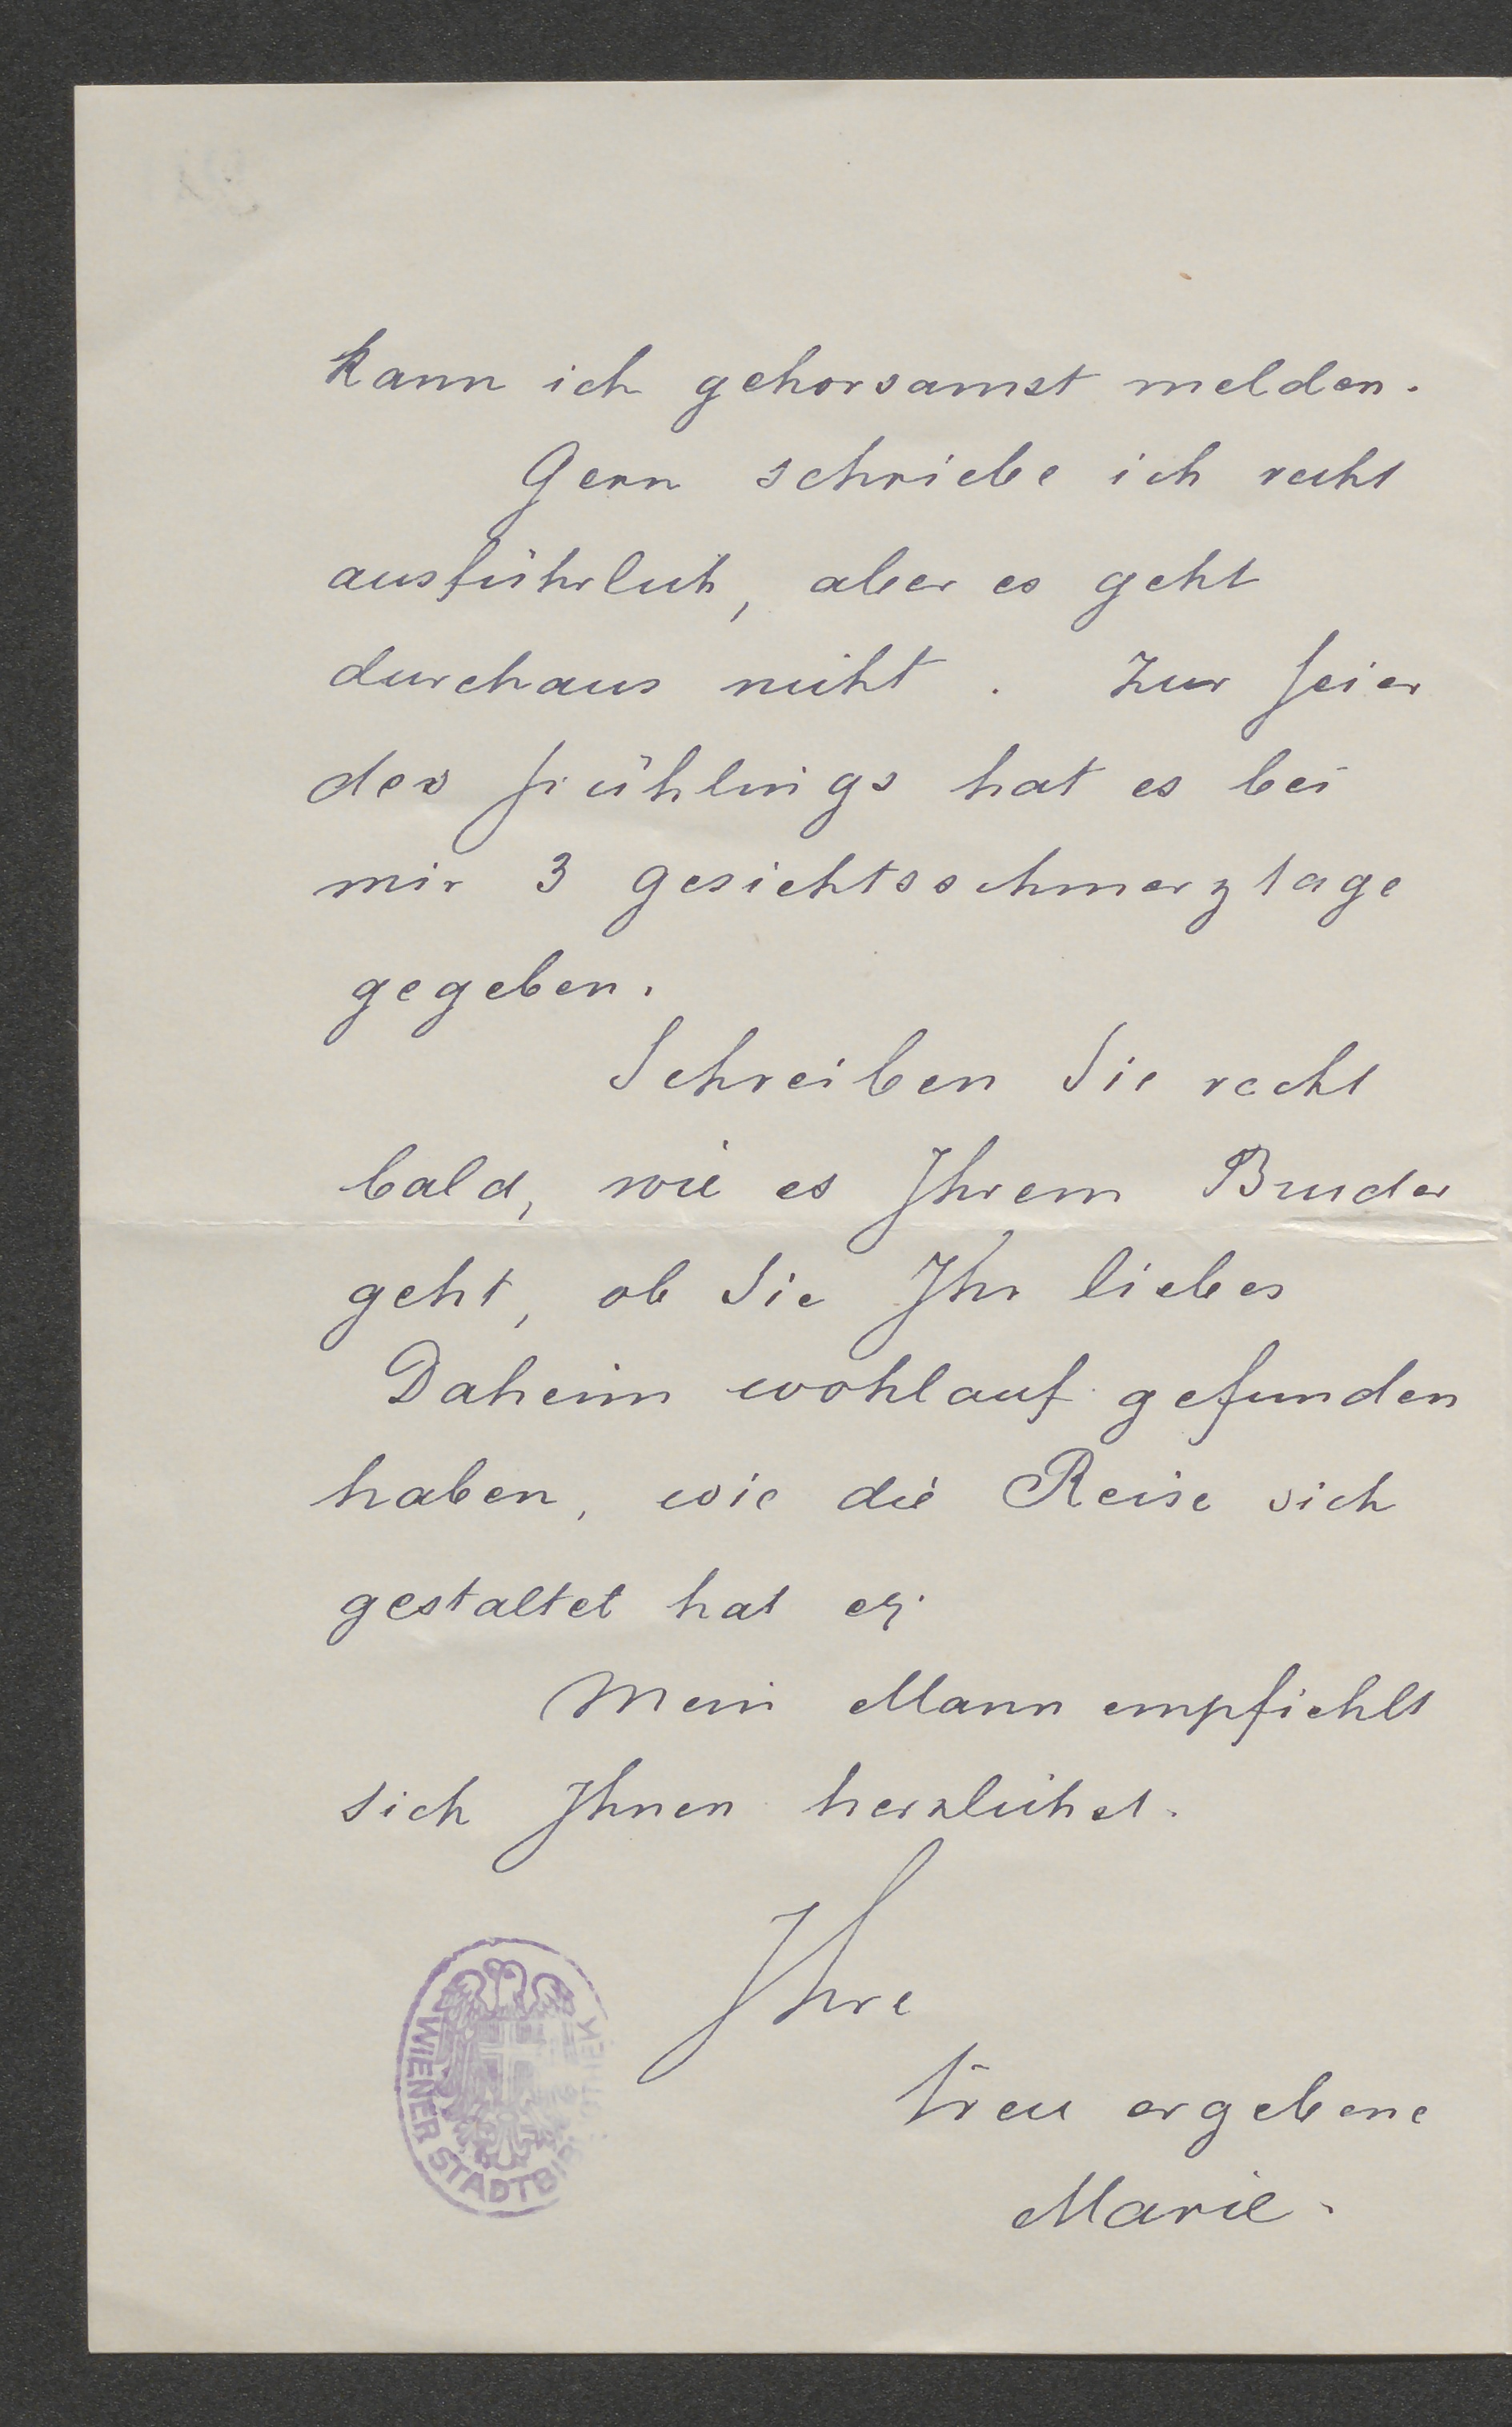 kann ich gehorsamst melden.
Gern schriebe ich recht
ausführlich, aber es geht
durchaus nicht. Zur Feier
des Frühlings hat es bei
mir 3 Gesichtsschmerztage
gegeben.
Schreiben Sie recht
bald, wie es Ihrem Bruder
geht, ob Sie Ihr liebes
Daheim wohlauf gefunden
haben, wie die Reise sich
gestaltet hat
Mein Mann empfiehlt
sich Ihnen herzlichst.
Ihre
treu ergebene
Marie.
WIENER STADTBIBLIOTHEK